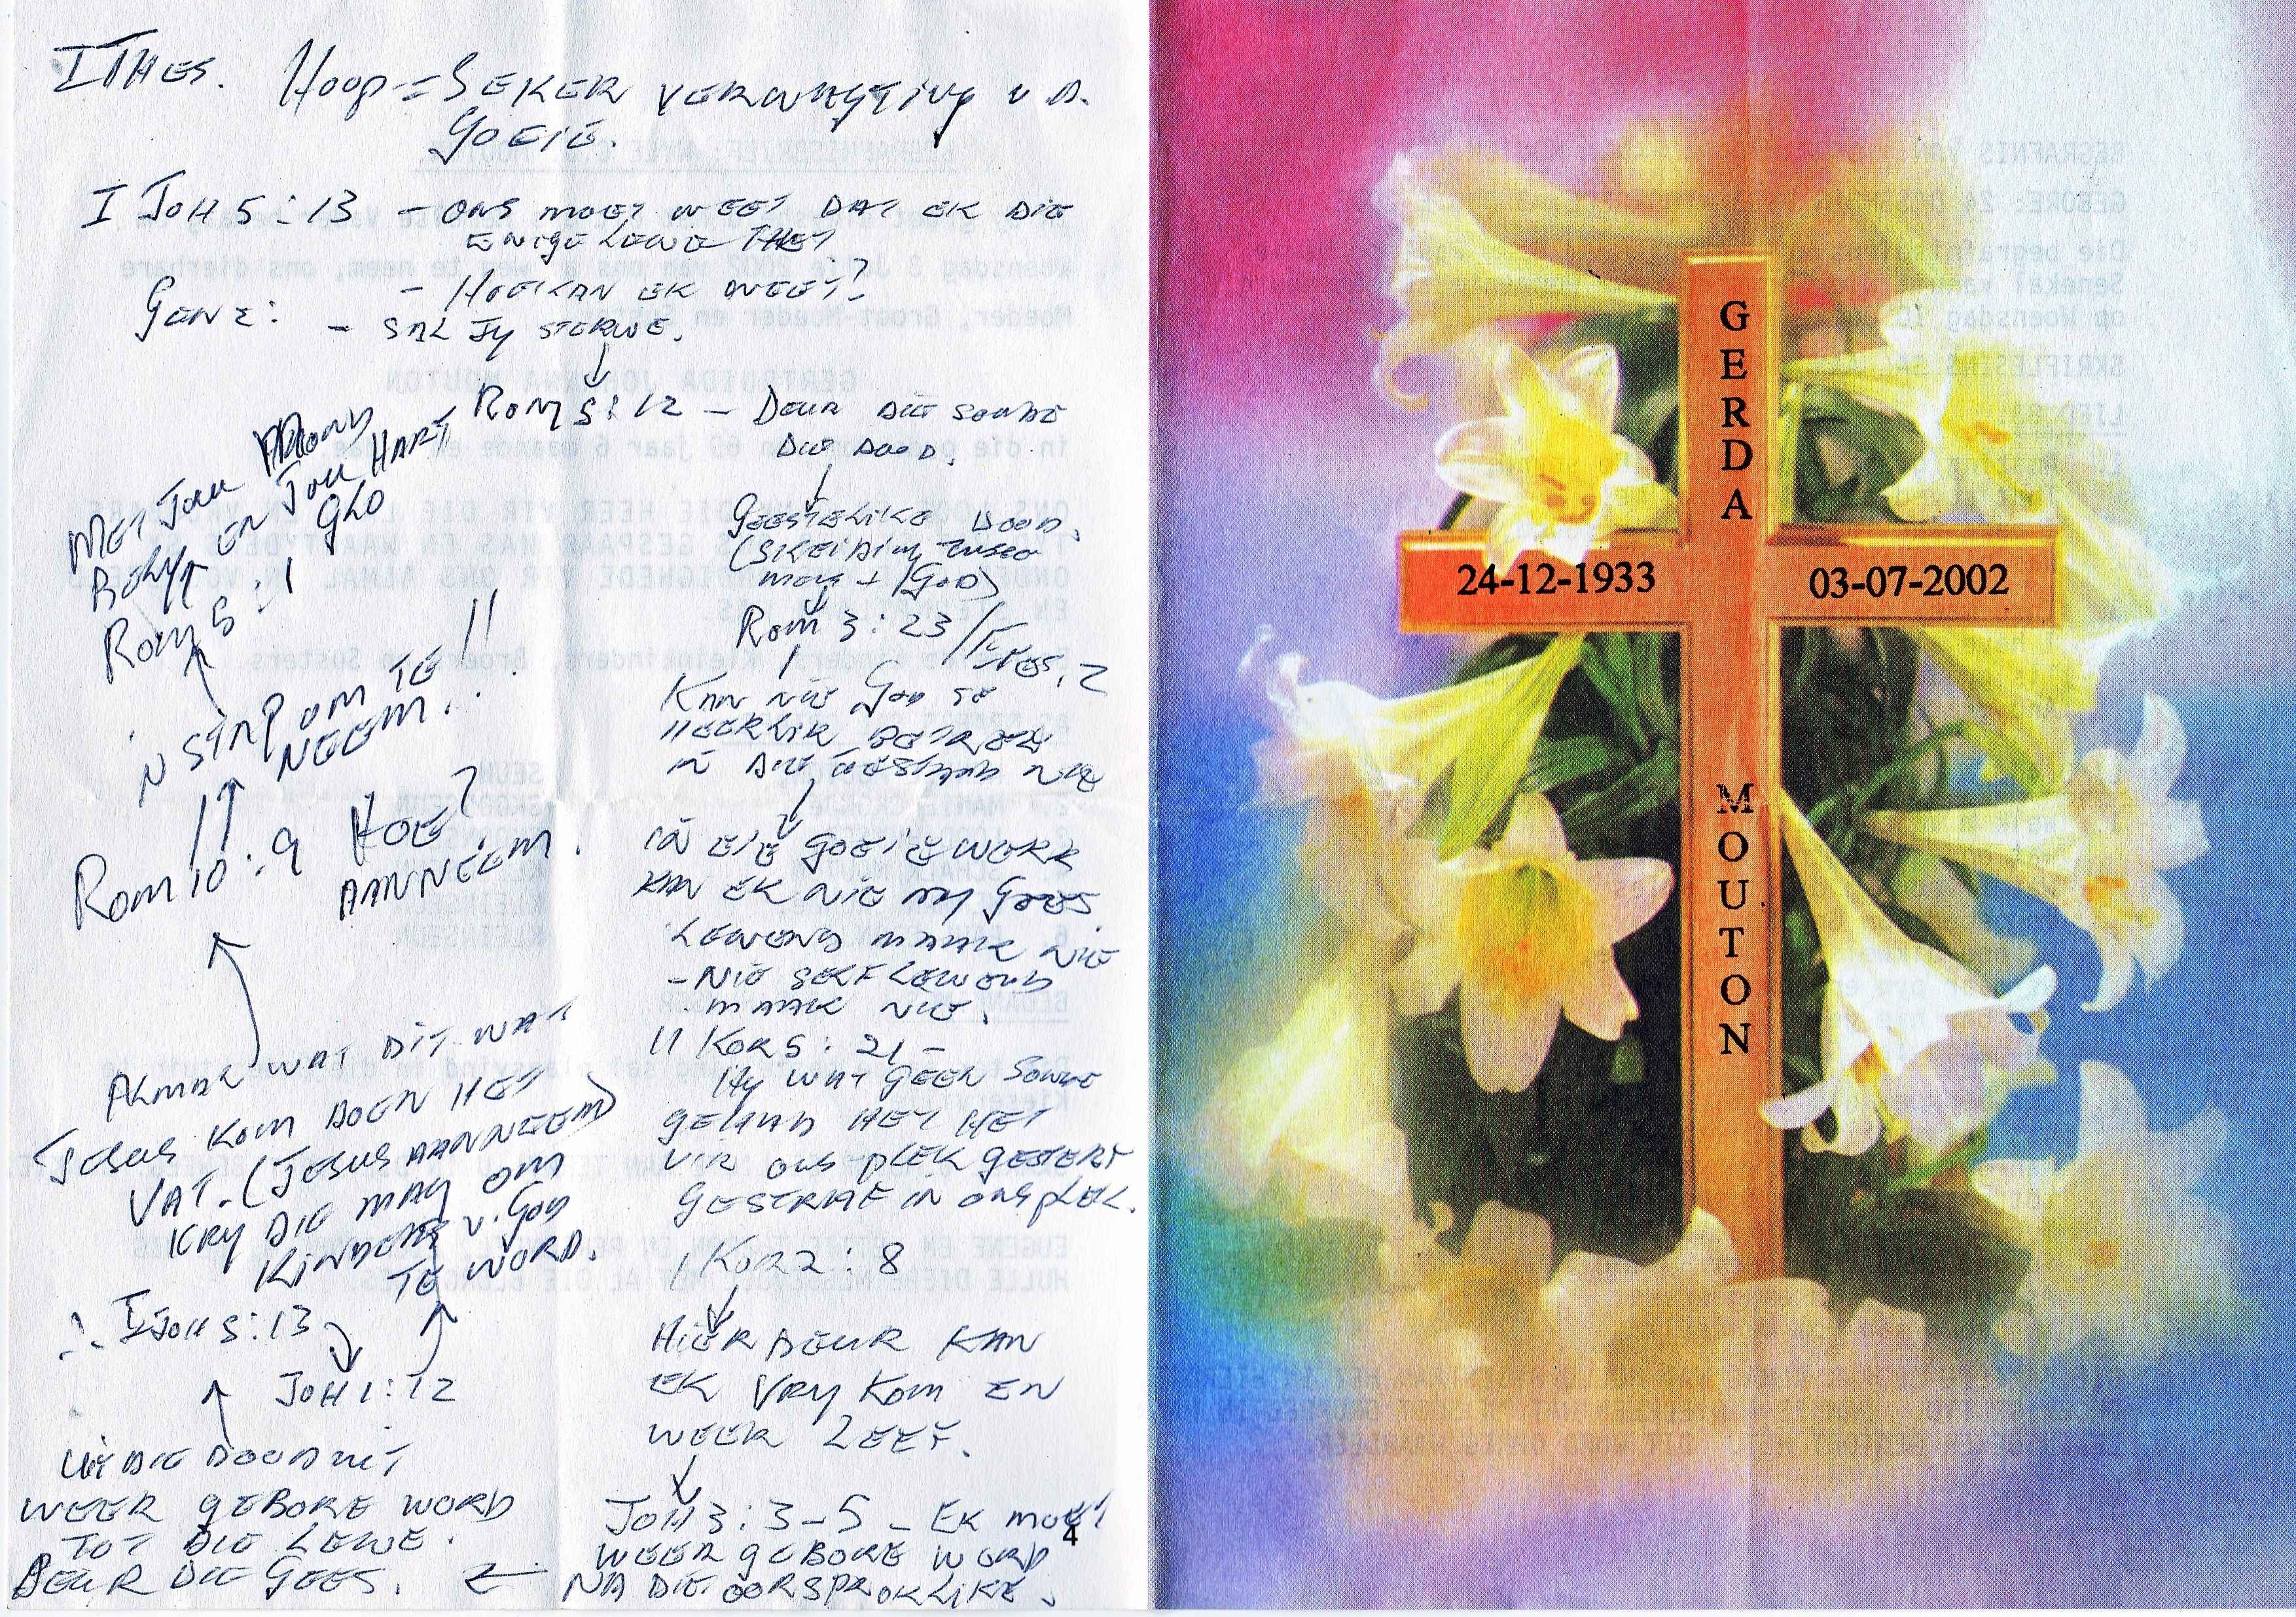 I THES. HOOP = SEKER VERWAGTING V.D.
GOEIE.
I JOH 5:13 - ONS MOET WEET DAT EK DIE
EWIGE LEWE HET
- HOE KAN EK WEET?
GEN 2: - SAL JY STERWE.
↓
ROM 5:12 - DEUR DIE SONDE
DIE DOOD.
↓
GEESTELIKE DOOD.
(SKEIDING TUSSEN
MENS + GOD)
↓
ROM 3:23 / EFES. 2
KAN NIE GOD SE
HEERLIK
IN DIE NIE
↓
IN EIE GOEIE WERK
KAN EK NIE MY GEES
LEWEND MAAK NIE
- NIE SELF LEWEND
MAAK NIE.
II KOR 5:21 -
HY WAT GEEN SONDE
GEHAD HET HET
VIR ONS PLEK GESTERF
GESTRAF IN ONS PLEK.
I KOR 2:8
↓
HIERDEUR KAN
EK VRY KOM EN
WEER LEEF.
↓
JOH 3:3-5 - EK MOET
WEER GEBORE WORD
NA DIE OORSPRONKLIKE.
←
UIT DIE DOOD UIT
WEER GEBORE WORD
TOT DIE LEWE.
DEUR DIE GEES.
↑
∴ I JOH 5:13
JOH 1:12
↑
ALMAL WAT DIT WAT
JESUS KOM DOEN HET
VAT. (JESUS AANNEEM)
KRY DIE MAG OM
KINDERS V. GOD
TE WORD.
↑
ROM 10:9 HOE?
AANNEEM.
↑
'N STAP OM TE
NEEM!!
↑
ROM 5:1
MET JOU MOND
BELY EN JOU HART
GLO
4
GERDA
24-12-1933 03-07-2002
MOUTON